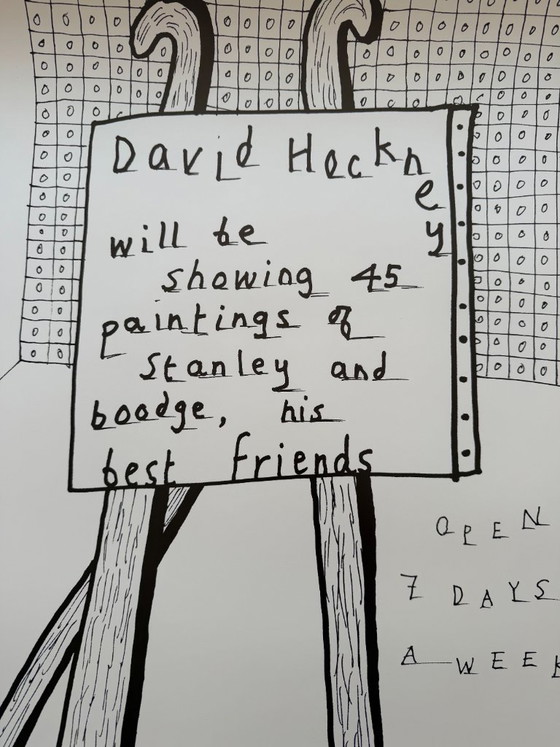 David Hockney
will be
showing 45
paintings of
Stanley and
boodge, his
best friends
OPEN
7 DAYS
A WEEK